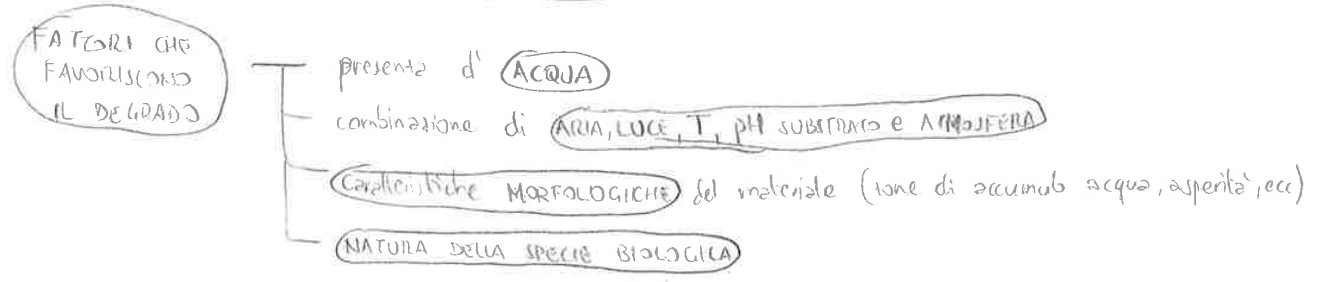 FATTORI CHE
FAVORISCONO
IL DEGRADO
presenza d' ACQUA
combinazione di ARIA, LUCE, T, pH SUBSTRATO e ATMOSFERA
Caratteristiche MORFOLOGICHE del materiale (zone di accumulo acqua, asperità, ecc)
NATURA DELLA SPECIE BIOLOGICA